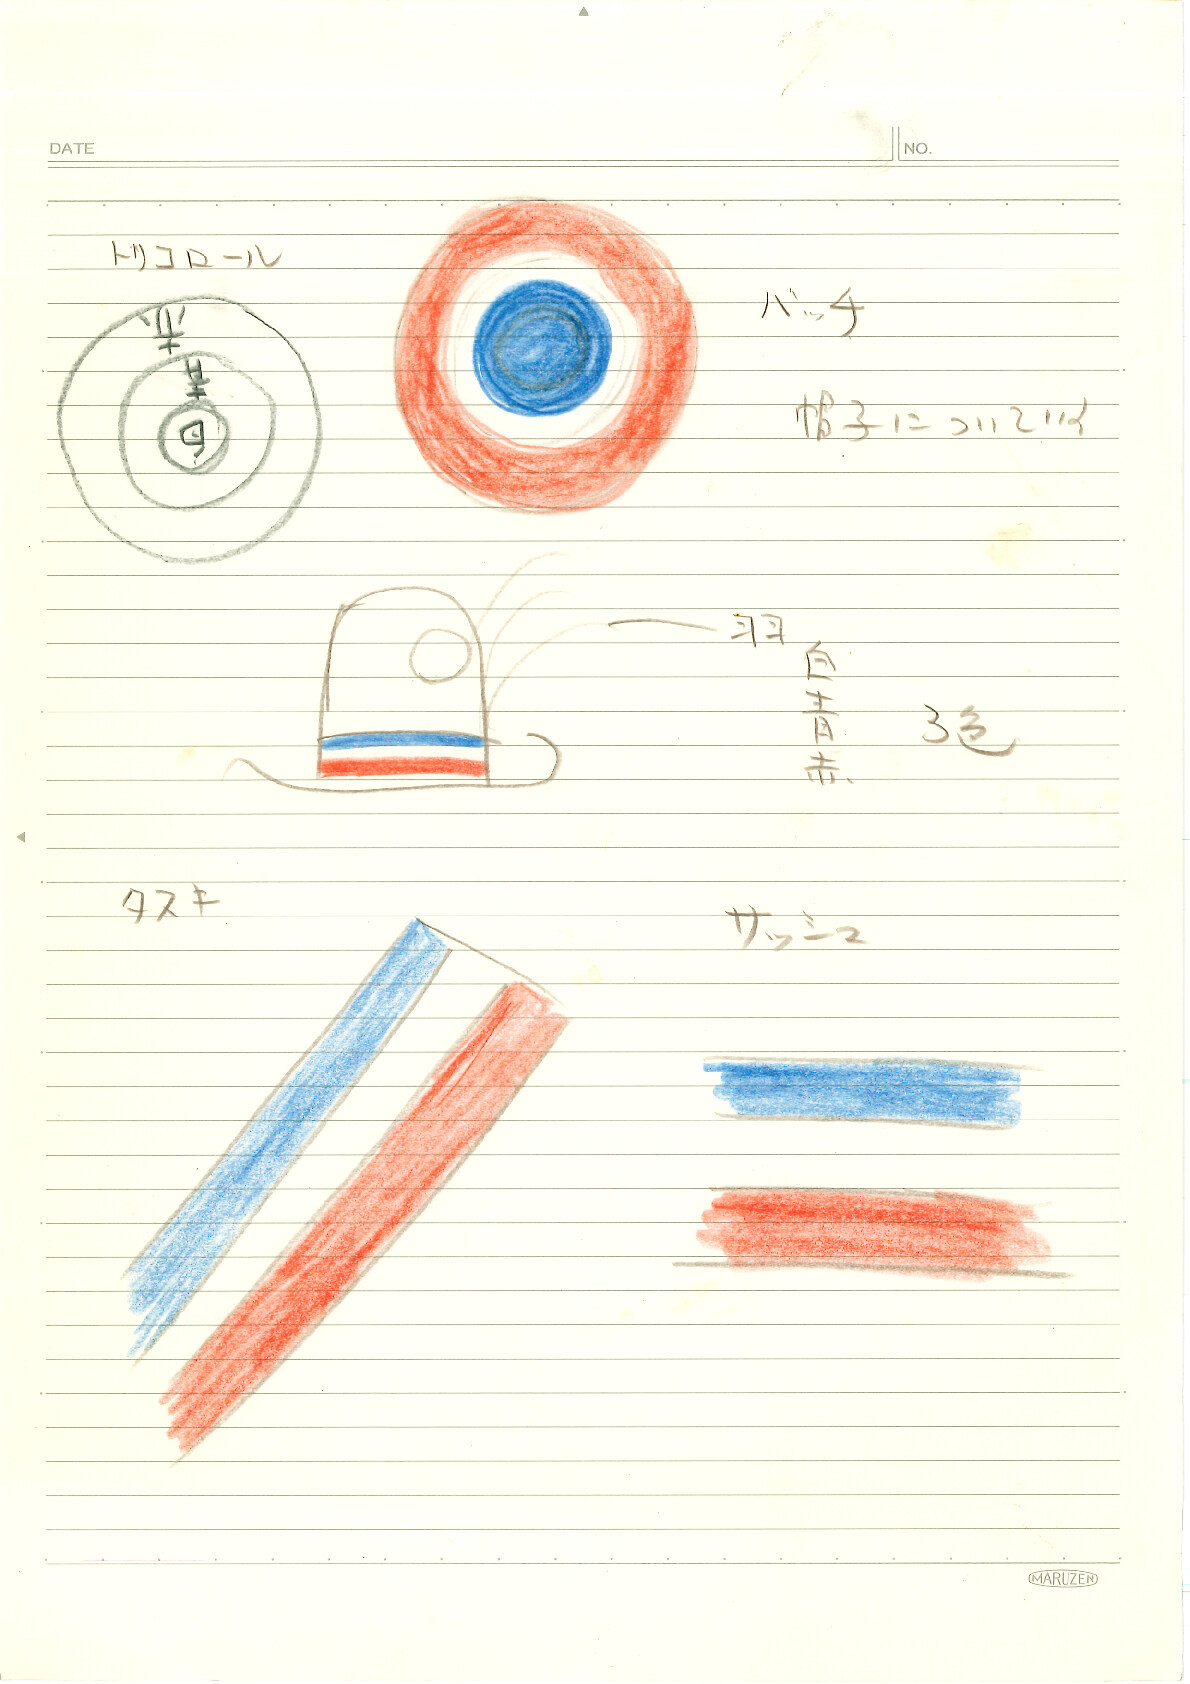 DATE
NO.
トリコロール
赤
青
白
バッチ
帽子についている
羽
白
青
赤
3色
タスキ
サッシュ
MARUZEN